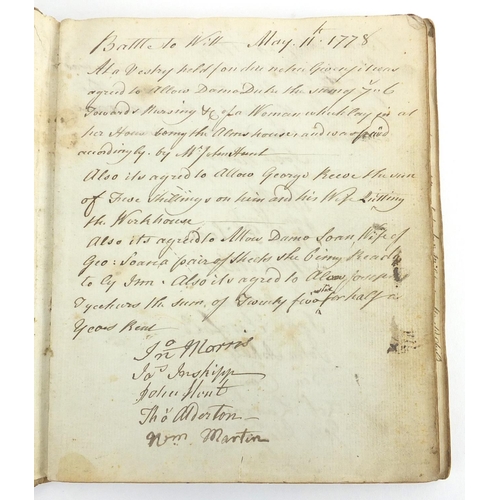 Battle to Wit May 11th 1778
At a Vestry held under notice Given it was
agreed to Allow Dame Duke the sum of 7s 6
Towards Nursing &c of a Woman which lay in at
her House coming the Alms house and was paid
accordingly by Mr John Hunt
Also its agreed to Allow George Reeve the sum
of Three Shillings on him and his Wife Quitting
the Workhouse
Also its agreed to Allow Dame Soan Wife of
Geo: Soan a pair of Sheets she being Ready
to Ly Inn. Also its agreed to
the sum of Twenty five for half a
Years Rent
Jno Morris
Jas Inskipp
John Hunt
Tho Alderton
Wm Marten